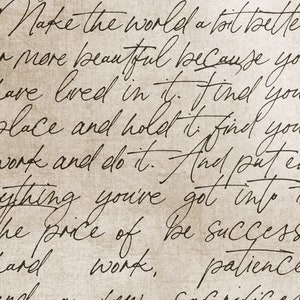 Make the world a bit bette
r more beautiful because you
have lived in it. Find you
place and hold it find you
work and do it. And put e
ything you've got into i
he price of be success
hard work, patience